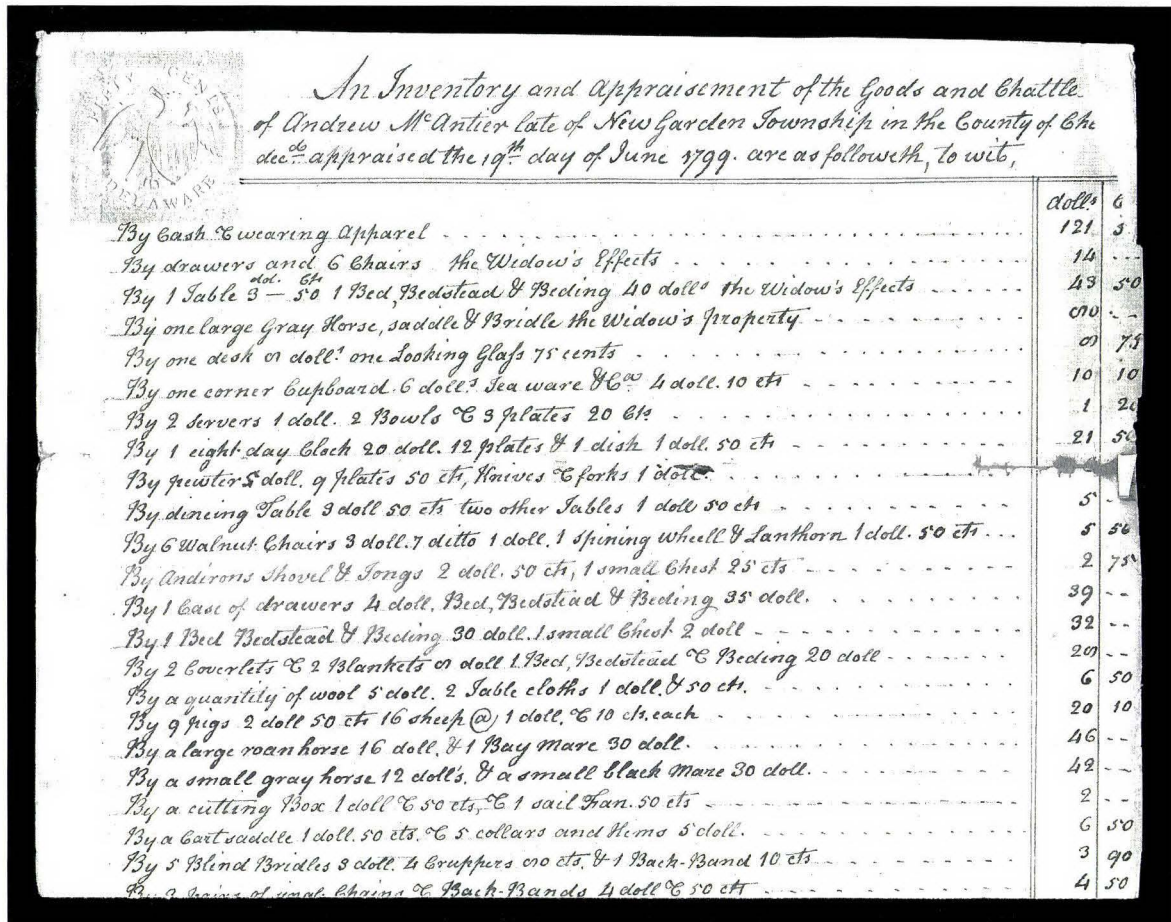 FIFTY CENTS
DELAWARE
An Inventory and Appraisement of the Goods and Chattle
of Andrew McAntier late of New Garden Township in the County of Che
decd appraised the 19th day of June 1799. are as followeth, to wit,
dolls C
By Cash & wearing Apparel 121 5
By drawers and 6 Chairs the Widow's Effects 14
By 1 Table 3 dol. — 50 Cts 1 Bed, Bedstead & Beding 40 dolls the Widow's Effects 43 50
By one large Gray Horse, saddle & Bridle the Widow's property 80
By one desk 8 dolls one Looking Glass 75 cents 8 75
By one corner Cupboard 6 dolls Tea ware &Ca 4 doll. 10 cts 10 10
By 2 servers 1 doll. 2 Bowls & 3 plates 20 Cts 1 20
By 1 eight day Clock 20 doll. 12 plates & 1 dish 1 doll. 50 cts 21 50
By pewter 5 doll. 9 plates 50 cts, Knives & forks 1 doll.
By dineing Table 3 doll 50 cts two other Tables 1 doll 50 cts 5
By 6 Walnut Chairs 3 doll. 7 ditto 1 doll. 1 spining wheell & Lanthorn 1 doll. 50 cts 5 50
By Andirons shovel & Tongs 2 doll. 50 cts, 1 small Chest 25 cts 2 75
By 1 Case of drawers 4 doll. Bed, Bedstead & Beding 35 doll. 39
By 1 Bed Bedstead & Beding 30 doll. 1 small Chest 2 doll 32
By 2 Coverlets & 2 Blankets 8 doll 1 Bed, Bedstead & Beding 20 doll 28
By a quantity of wool 5 doll. 2 Table cloths 1 doll. & 50 cts. 6 50
By 9 pigs 2 doll 50 cts 16 sheep @ 1 doll. & 10 cts. each 20 10
By a large roan horse 16 doll. & 1 Bay mare 30 doll. 46
By a small gray horse 12 doll's. & a small black mare 30 doll. 42
By a cutting Box 1 doll & 50 cts, & 1 sail Fan. 50 cts 2
By a Cart saddle 1 doll. 50 cts. & 5 collars and Hems 5 doll. 6 50
By 5 Blind Bridles 3 doll. 4 Cruppers 80 cts. & 1 Back-Band 10 cts 3 90
By 3 pairs of Chains & Back-Bands 4 doll & 50 cts 4 50